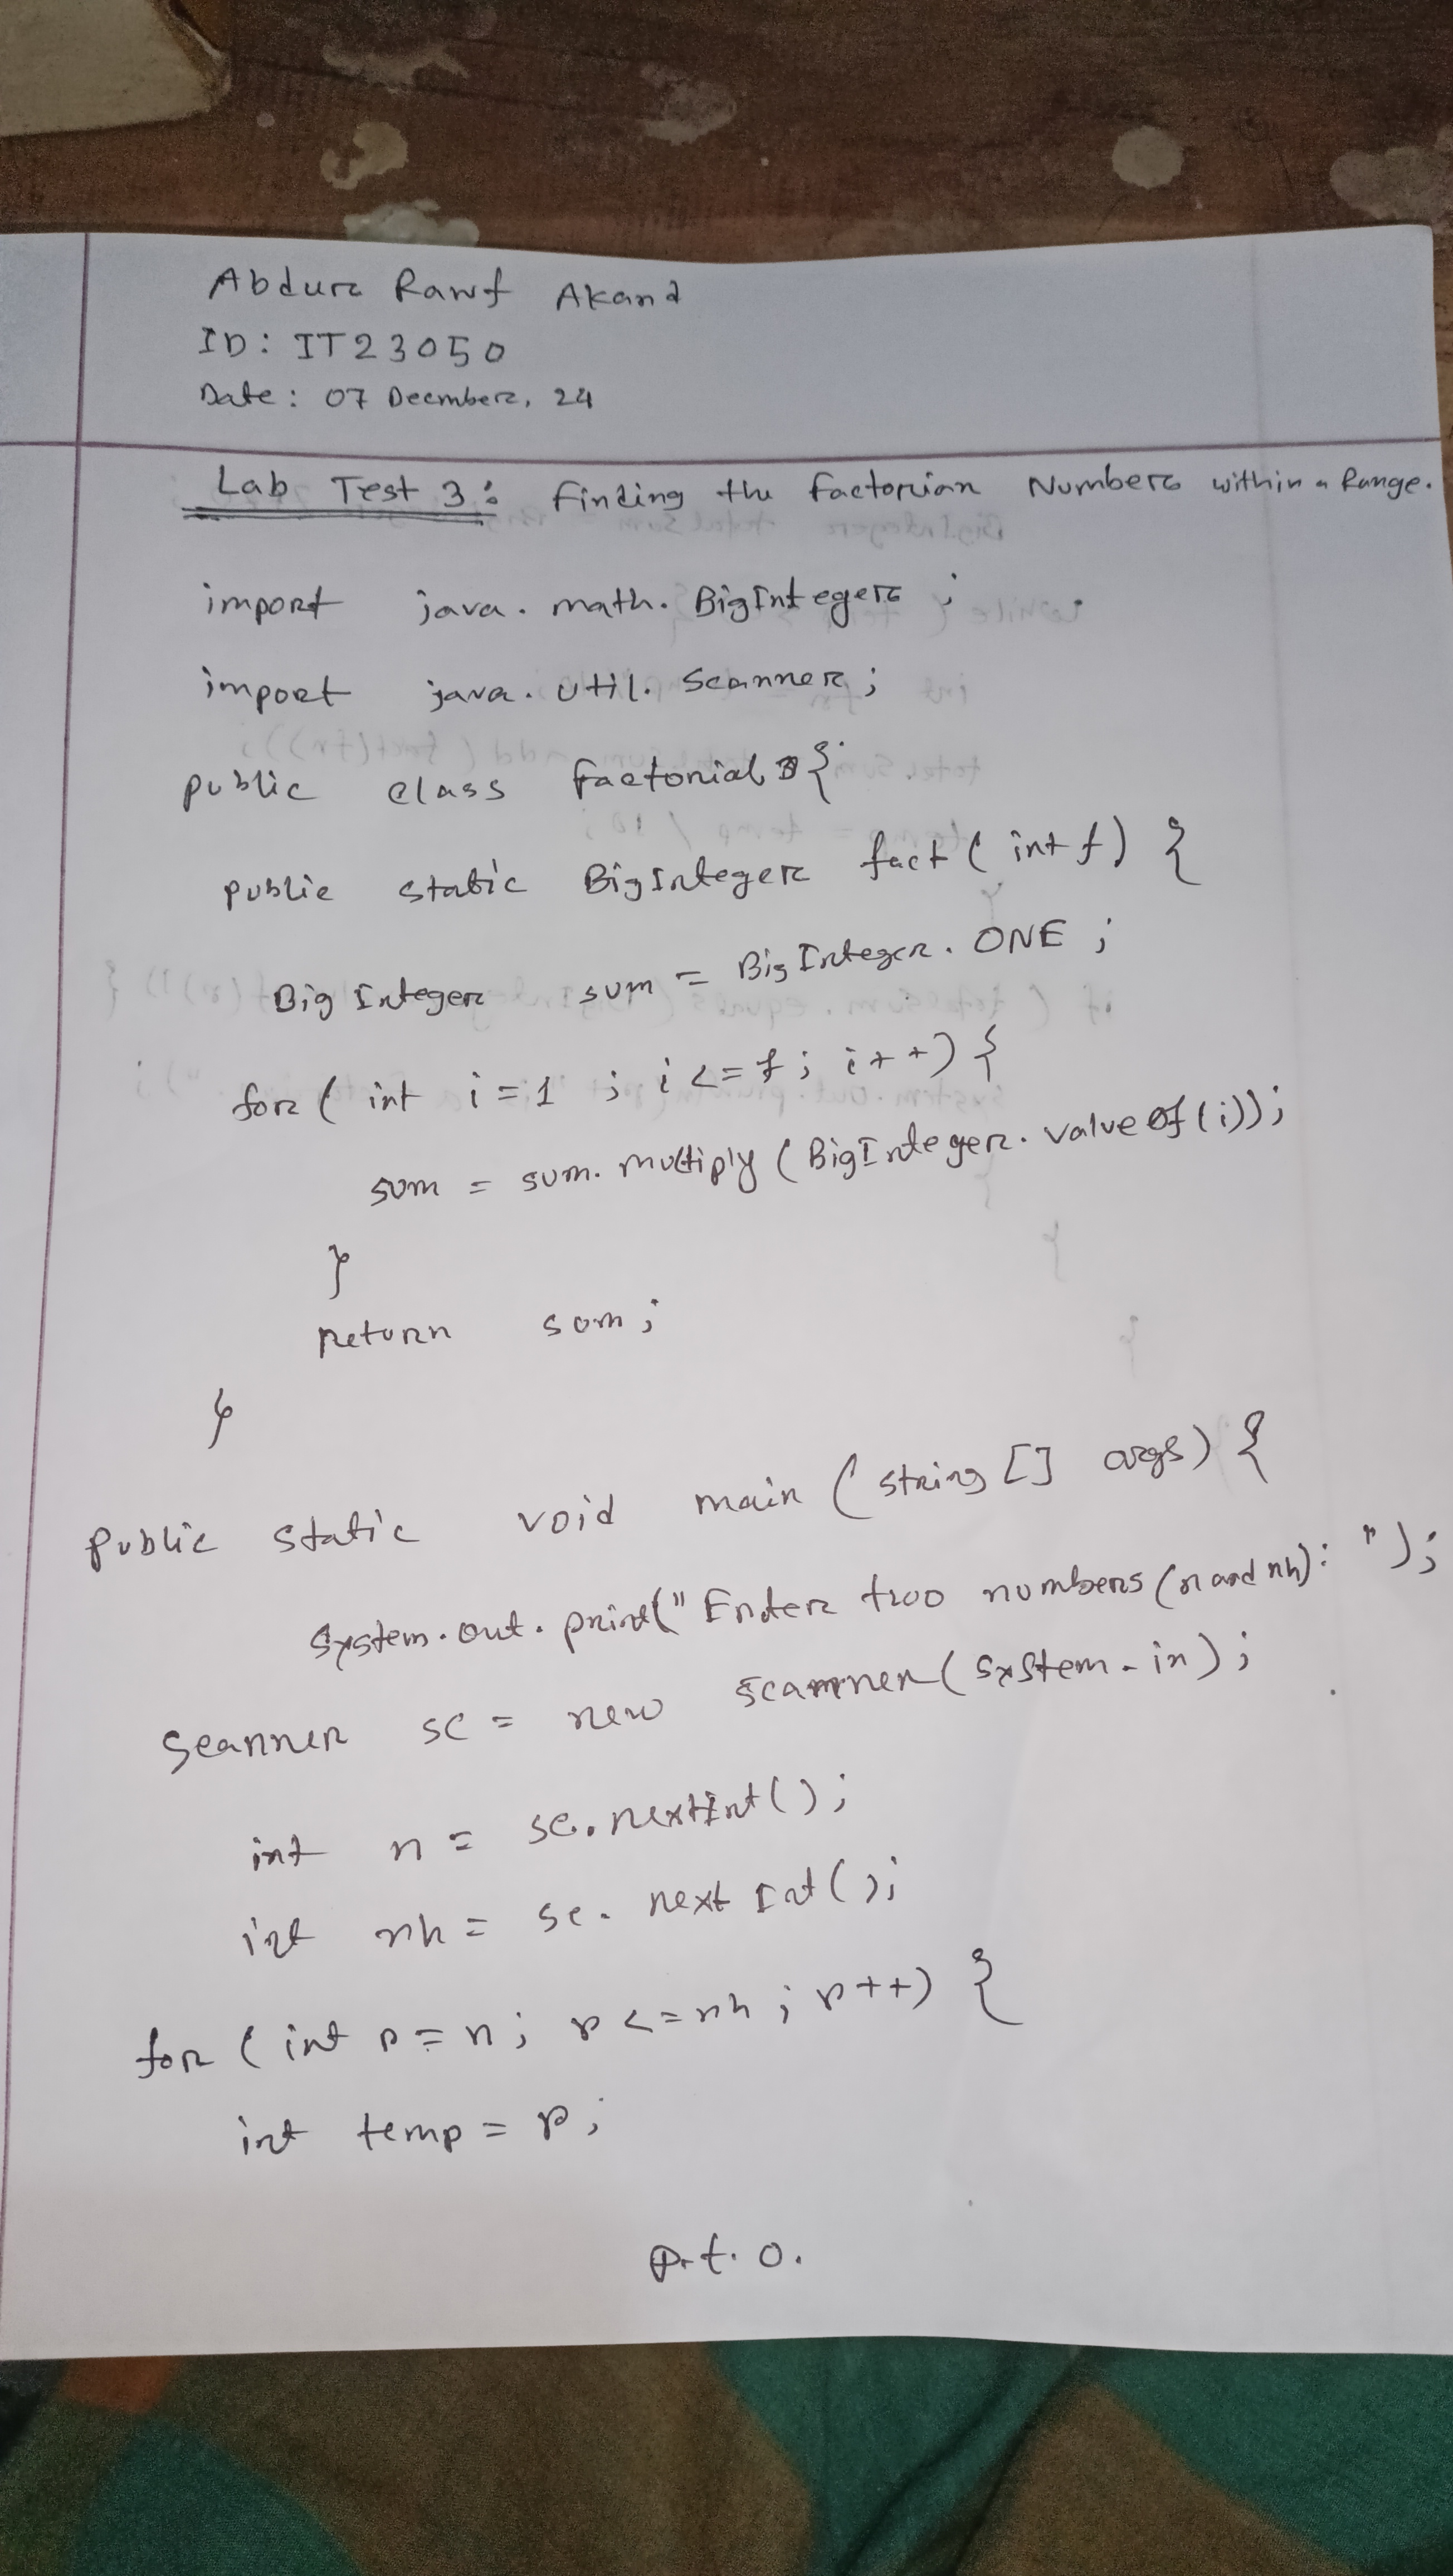 Abdur Rauf Akand
ID: IT23050
Date: 07 Decmber, 24
Lab Test 3: Finding the Factorian Numbers within a Range.
import java.math.BigInteger;
import java.util.Scanner;
public class Factorial {
public static BigInteger fact(int f) {
BigInteger sum = BigInteger.ONE;
for (int i=1; i<=f; i++) {
sum = sum.multiply(BigInteger.valueOf(i));
}
return sum;
}
public static void main(string[] args) {
System.out.print("Enter two numbers (n and nh): ");
Scanner sc = new Scanner(System.in);
int n = sc.nextInt();
int nh = sc.nextInt();
for (int r=n; r<=nh; r++) {
int temp = r;
P.t.o.